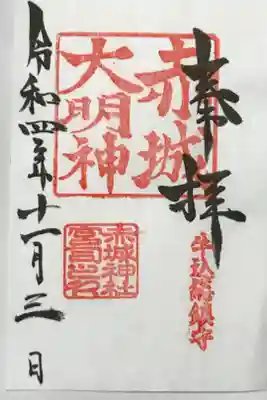 奉拝
赤城
大明神
牛込総鎮守
赤城神社
宮司之印
令和四年十一月三日